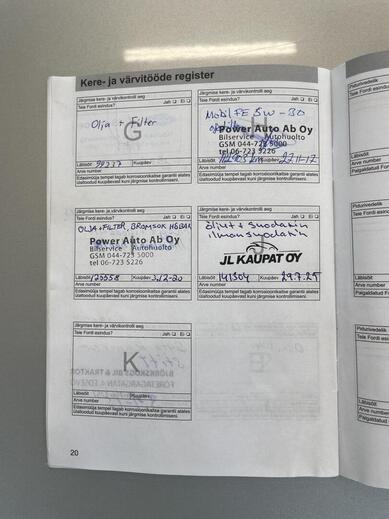 Kere- ja värvitööde register
Järgmise kere- ja värvikontrolli aeg
Teie Fordi esindus? Jah Ei
Olja + Filter
G
Läbisõit Kuupäev
Arve number
Edasimüüja tempel tagab korrosioonikaitse garantii alates
ülaltoodud kuupäevast kuni järgmise kontrollimiseni.
Järgmise kere- ja värvikontrolli aeg
Teie Fordi esindus? Jah Ei
Mobil FE 5W-30
Power Auto Ab Oy
Bilservice Autohuolto
GSM 044-723 5000
tel 06-723 5226
Läbisõit Kuupäev 27.11-17
Arve number
Edasimüüja tempel tagab korrosioonikaitse garantii alates
ülaltoodud kuupäevast kuni järgmise kontrollimiseni.
Järgmise kere- ja värvikontrolli aeg
Teie Fordi esindus? Jah Ei
OLJA+FILTER, BROMSOK
Power Auto Ab Oy
Bilservice Autohuolto
GSM 044-723 5000
tel 06-723 5226
Läbisõit 125558 Kuupäev 3.12-20
Arve number
Edasimüüja tempel tagab korrosioonikaitse garantii alates
ülaltoodud kuupäevast kuni järgmise kontrollimiseni.
Järgmise kere- ja värvikontrolli aeg
Teie Fordi esindus? Jah Ei
öljyt + suodatin
ilmansuodatin
JL KAUPAT OY
Läbisõit 141304 Kuupäev 29.7.25
Arve number
Edasimüüja tempel tagab korrosioonikaitse garantii alates
ülaltoodud kuupäevast kuni järgmise kontrollimiseni.
Järgmise kere- ja värvikontrolli aeg
Teie Fordi esindus? Jah Ei
K
Läbisõit Kuupäev
Arve number
Edasimüüja tempel tagab korrosioonikaitse garantii alates
ülaltoodud kuupäevast kuni järgmise kontrollimiseni.
20